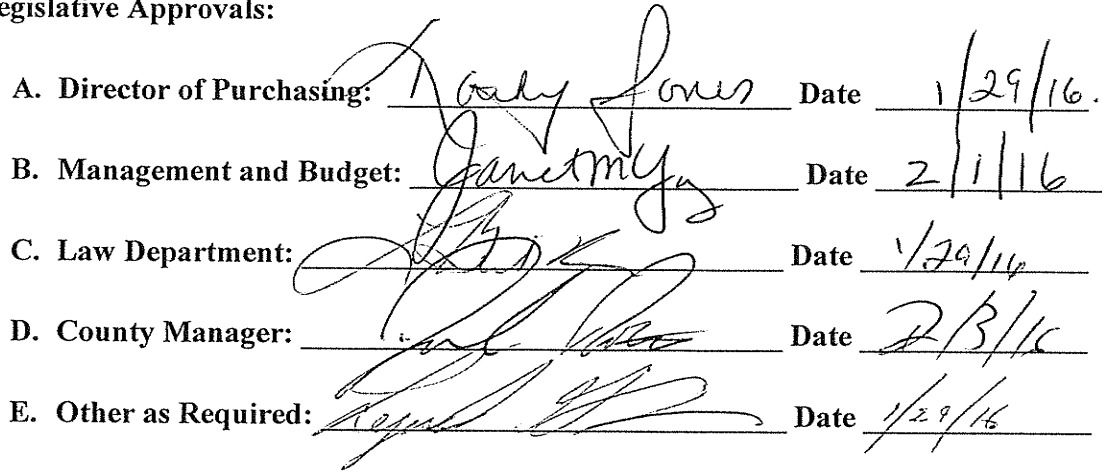 egislative Approvals:
A. Director of Purchasing: Jones Date 1/29/16.
B. Management and Budget: Janet Date 2/1/16
C. Law Department: Date 1/29/16
D. County Manager: Date 2/3/16
E. Other as Required: Date 1/29/16